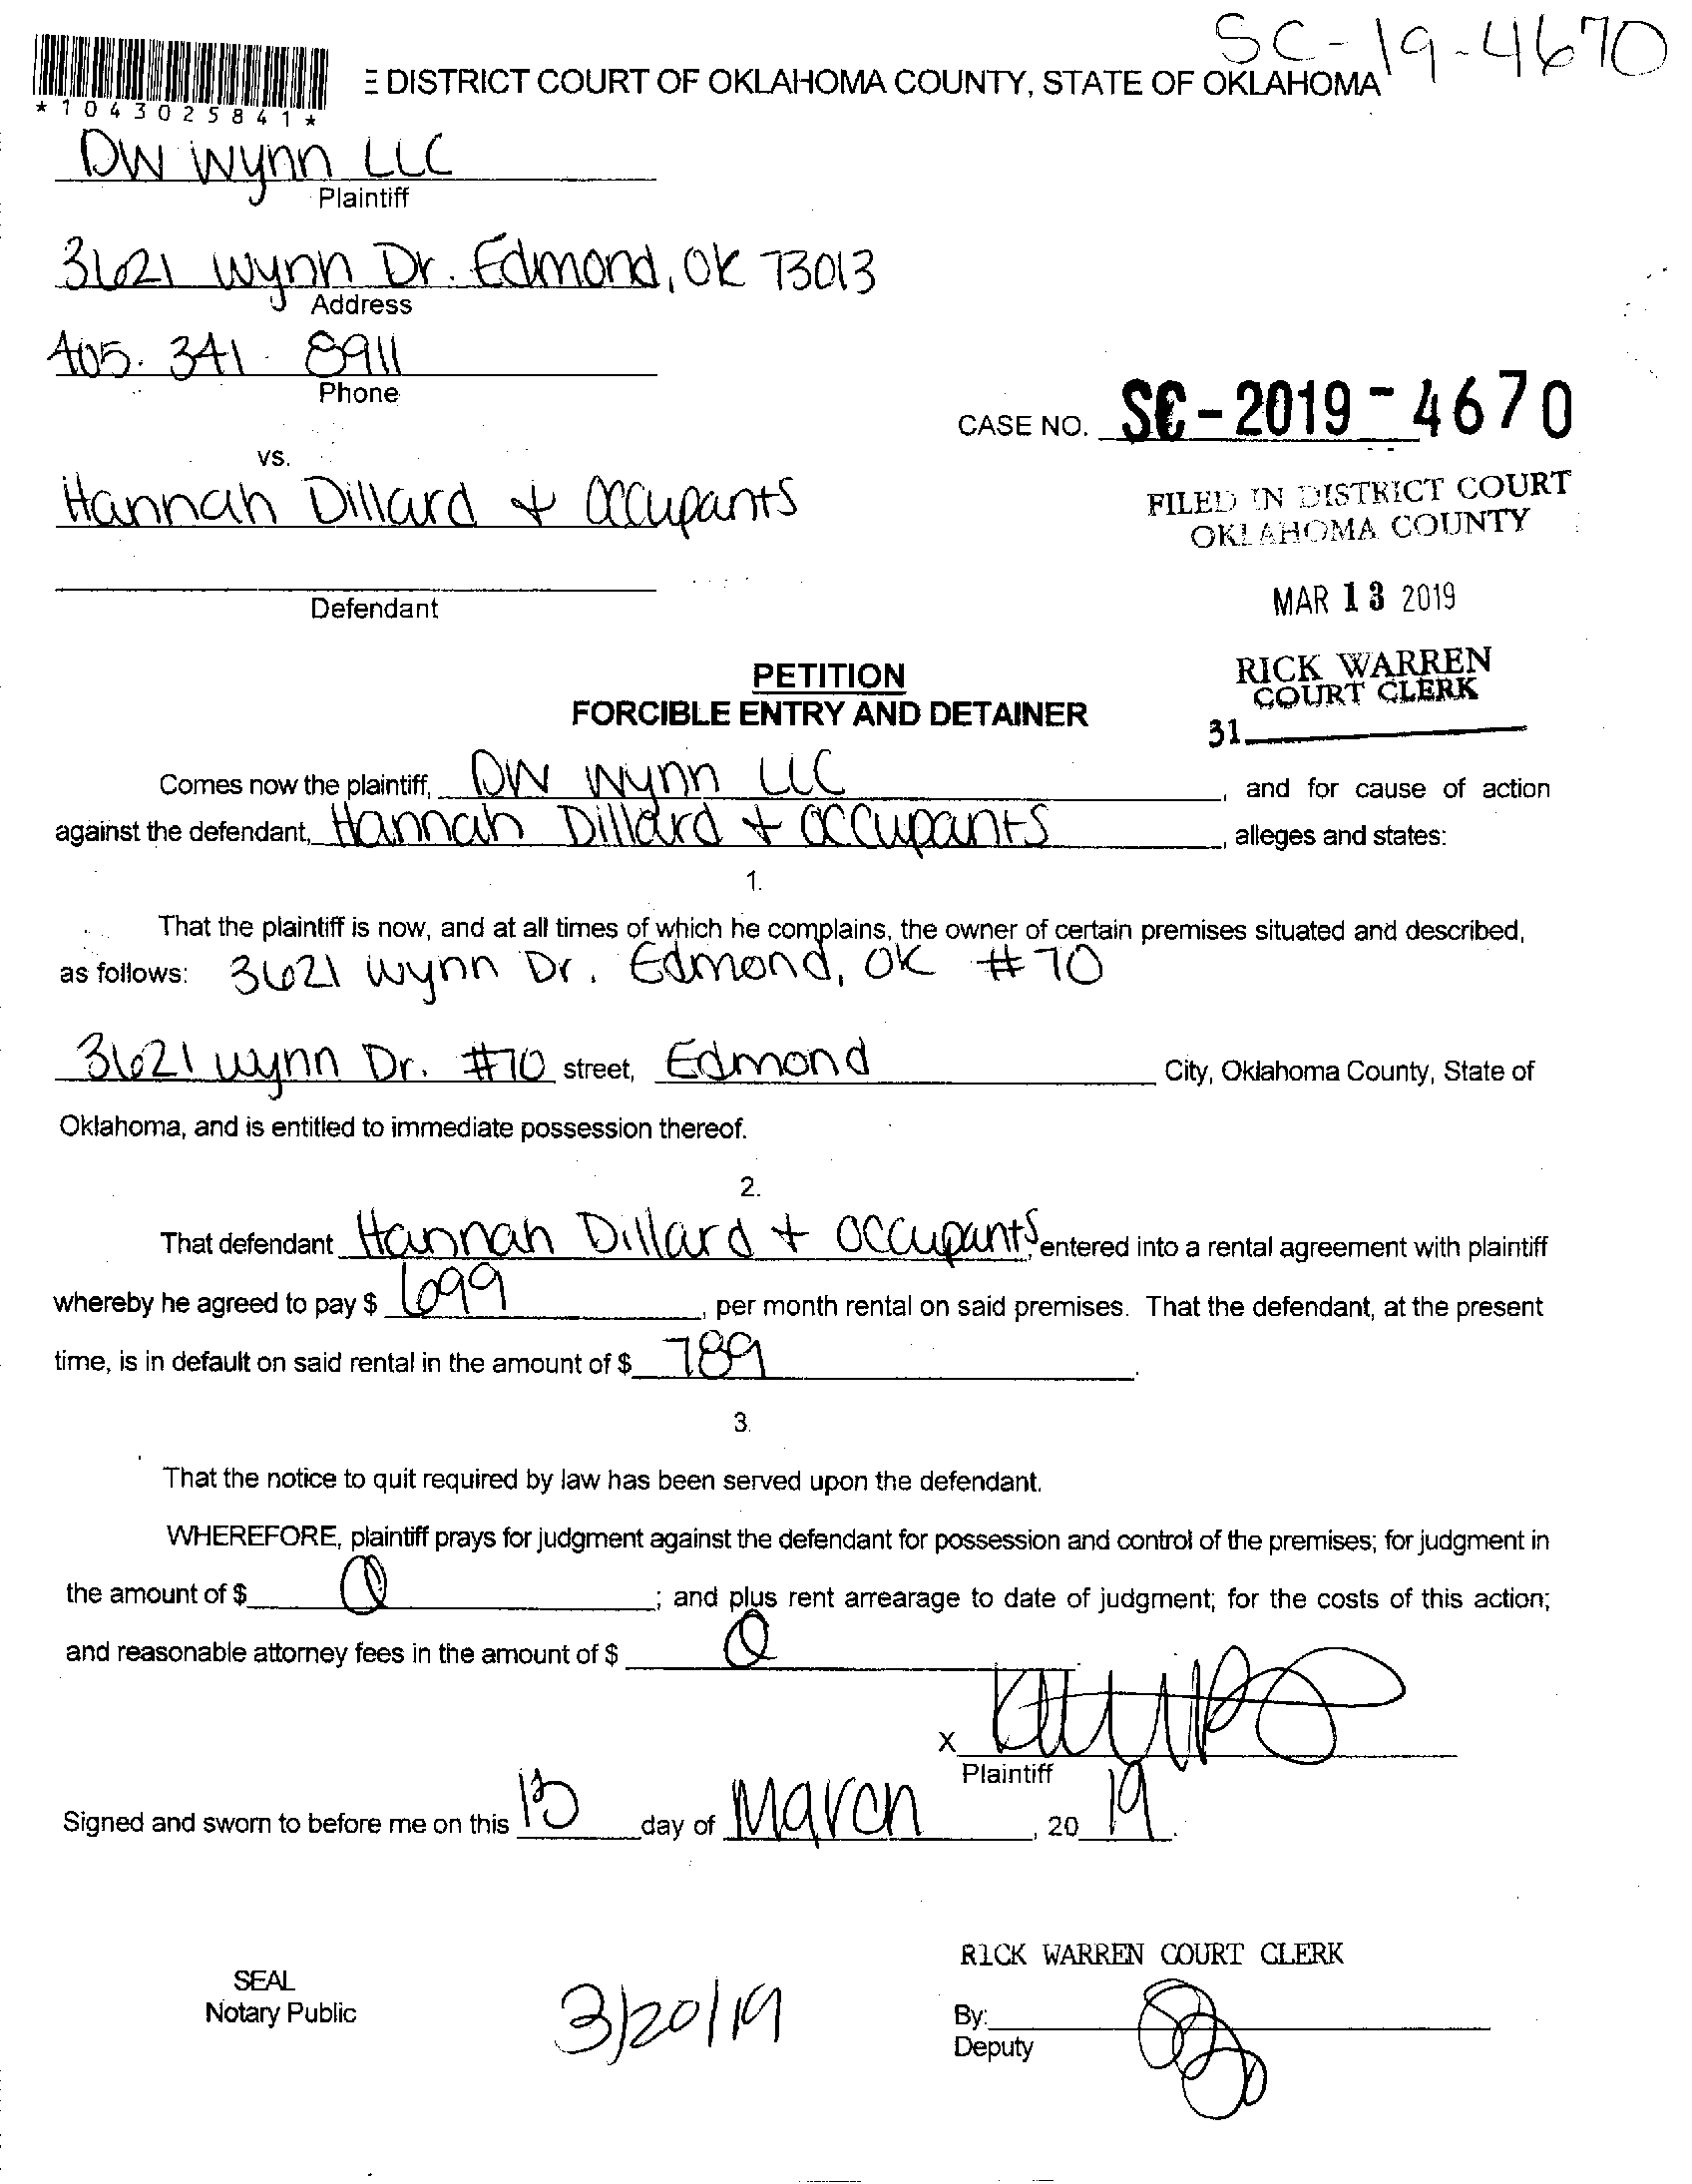 SC-19-4670
E DISTRICT COURT OF OKLAHOMA COUNTY, STATE OF OKLAHOMA
*1043025841*
DW Wynn LLC
Plaintiff
3621 Wynn Dr. Edmond, OK 73013
Address
405. 341. 8911
Phone
CASE NO. SC-2019-4670
vs.
Hannah Dillard + Occupants
FILED IN DISTRICT COURT
OKLAHOMA COUNTY
Defendant
MAR 13 2019
PETITION
FORCIBLE ENTRY AND DETAINER
RICK WARREN
COURT CLERK
31
Comes now the plaintiff, DW Wynn LLC, and for cause of action
against the defendant, Hannah Dillard + Occupants, alleges and states:
1.
That the plaintiff is now, and at all times of which he complains, the owner of certain premises situated and described,
as follows: 3621 Wynn Dr. Edmond, OK #70
3621 Wynn Dr. #70 street, Edmond City, Oklahoma County, State of
Oklahoma, and is entitled to immediate possession thereof.
2.
That defendant Hannah Dillard + Occupants, entered into a rental agreement with plaintiff
whereby he agreed to pay $ 699, per month rental on said premises. That the defendant, at the present
time, is in default on said rental in the amount of $ 789.
3.
That the notice to quit required by law has been served upon the defendant.
WHEREFORE, plaintiff prays for judgment against the defendant for possession and control of the premises; for judgment in
the amount of $ 0; and plus rent arrearage to date of judgment; for the costs of this action;
and reasonable attorney fees in the amount of $ 0
X
Plaintiff
Signed and sworn to before me on this 13 day of March, 20 19.
RICK WARREN COURT CLERK
SEAL
Notary Public
3/20/19
By:
Deputy